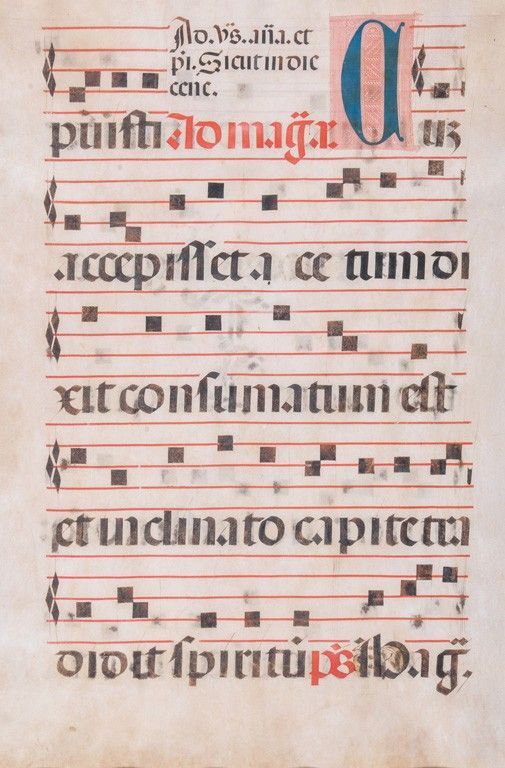 Ad. Vs̄. an̄a. et
p̄i. Sicut in die
cene.
puisti Ad mag̃. a Cuz
accepisset a ce tum di
xit consumatum est
et inclinato capite tra
didit spiritū ps̄ Mag̃.